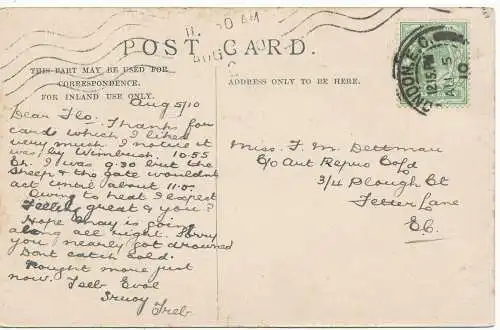 11. 30 AM
AUG
POST CARD.
THIS PART MAY BE USED FOR
CORRESPONDENCE.
FOR INLAND USE ONLY.
ADDRESS ONLY TO BE HERE.
LONDON. E.C.
12.15 PM
AU 5
10
Aug 5/10
Dear Flo. Thanks for
card which I liked
very much I notice it
was by Wimbush. 10.55
Eh. I was 9.30 but the
Sheep & the gate wouldnt
act until about 11.0.
Owing to heat I expect
Feeling great & you?
Hope May is going
along all right. Sorry
you nearly got drowned
Dont catch cold.
Nought more just
now. Teeb Evol
Sruoy Treb
Miss F. M. Dettmau
C/o Aut Repro Co/d
3/4 Plough Ct
Fetter Lane
E.C.